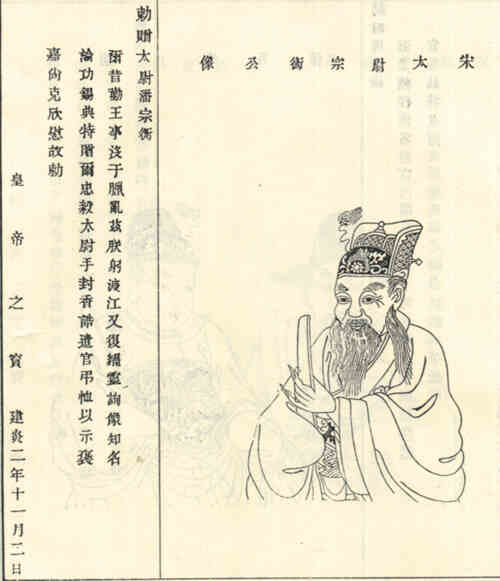 宋太尉宗衡公像
勅贈太尉潘宗衡
爾昔勤王事沒于臘亂茲朕躬渡江又復靈詢儼知名
論功錫典特贈爾忠毅太尉手封香誥遣官弔恤以示褒
嘉尚克欣慰故勅
皇帝之寶 建炎二年十一月二日